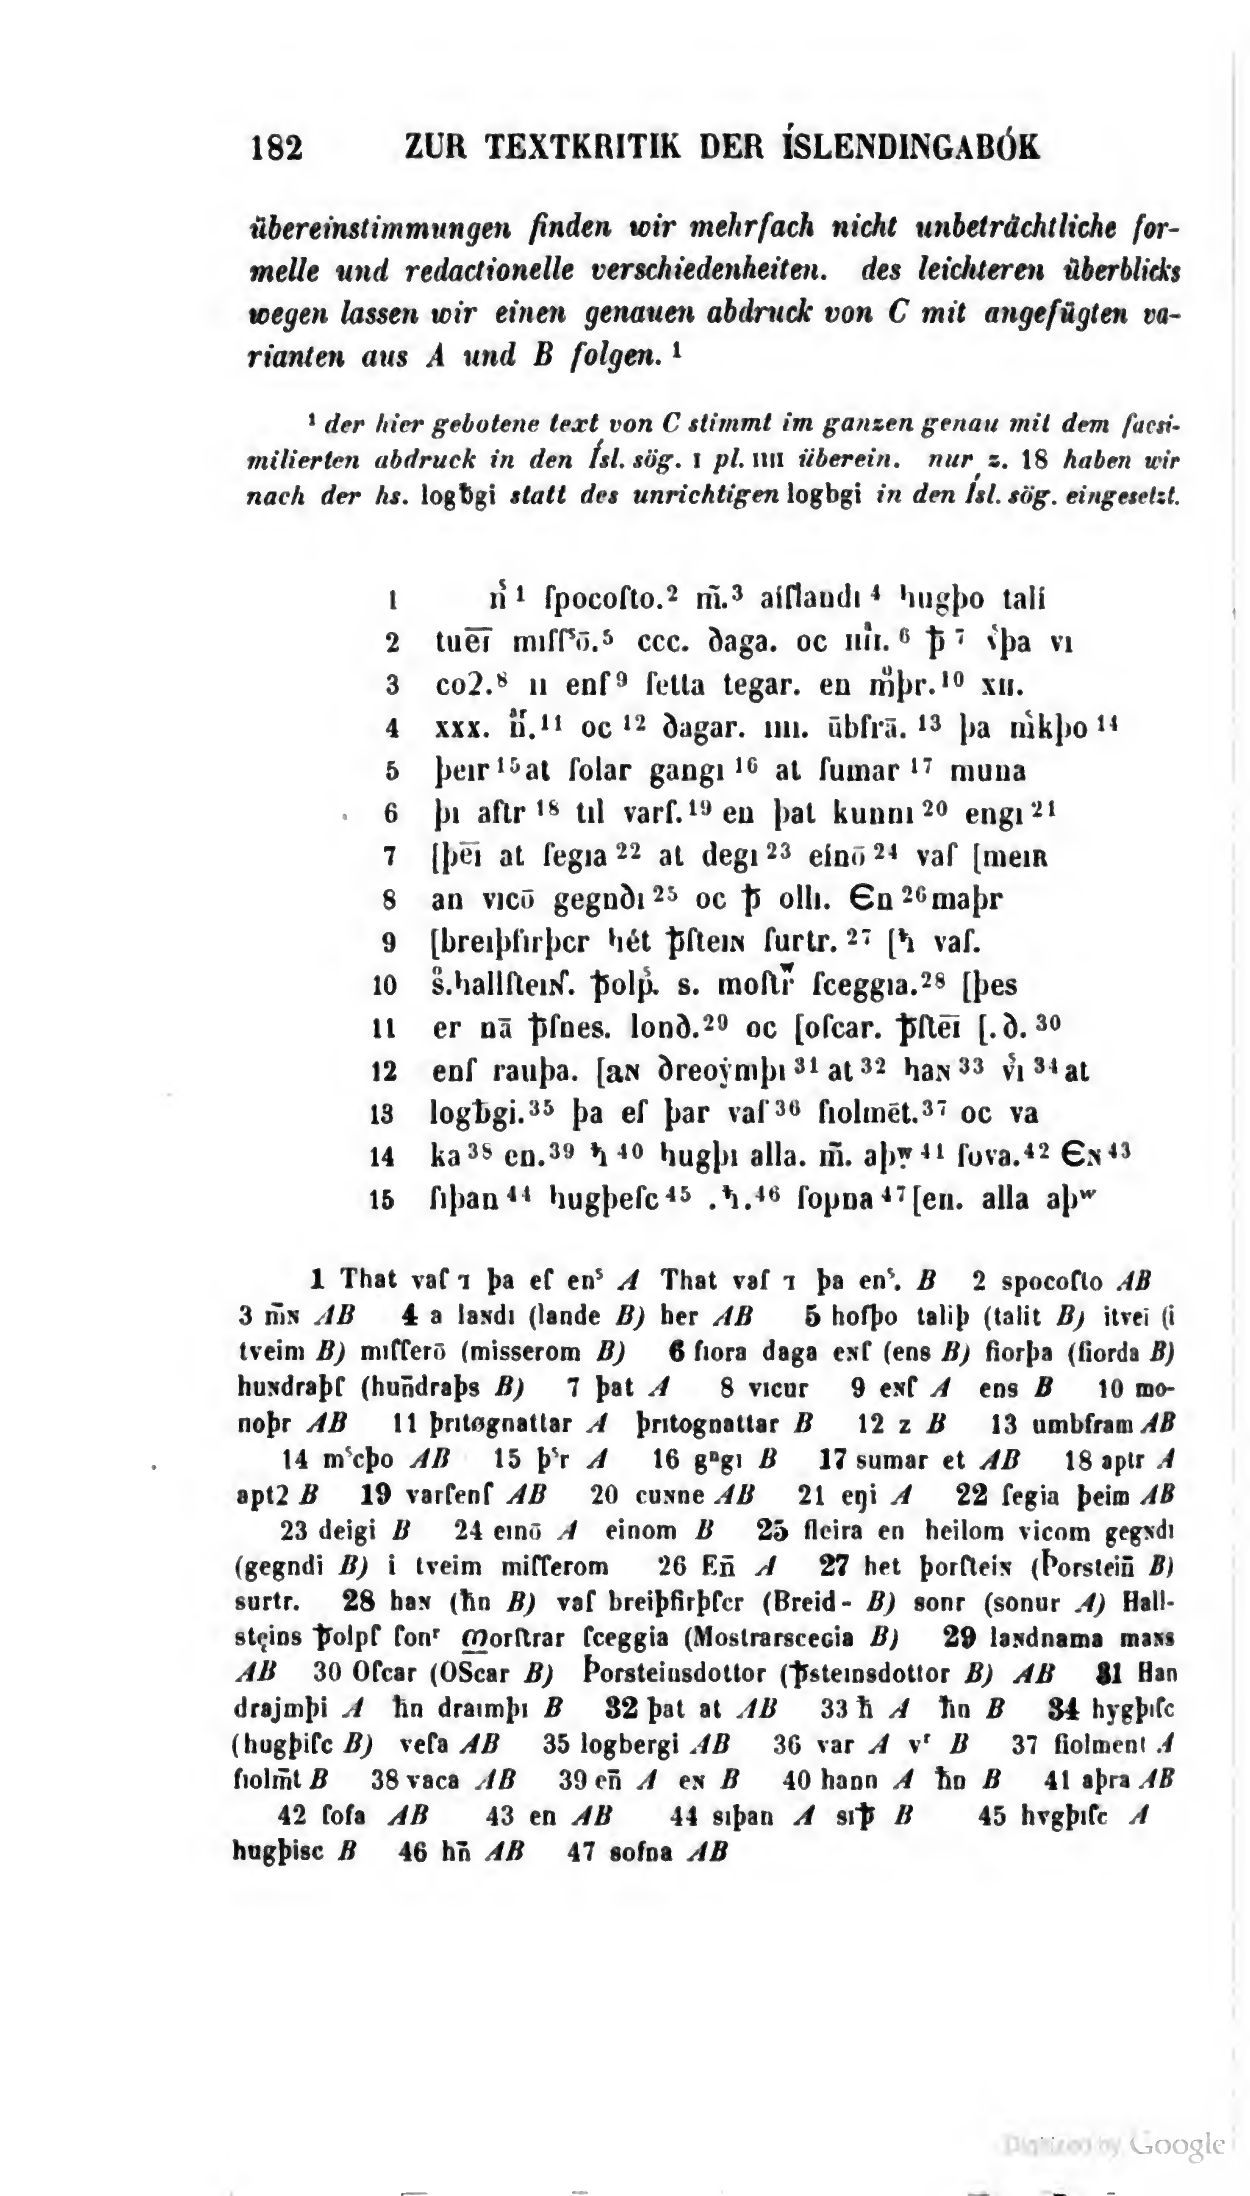 182 ZUR TEXTKRITIK DER ÍSLENDINGABÓK
übereinstimmungen finden wir mehrfach nicht unbeträchtliche for-
melle und redactionelle verschiedenheiten. des leichteren überblicks
wegen lassen wir einen genauen abdruck von C mit angefügten va-
rianten aus A und B folgen. ¹
¹ der hier gebotene text von C stimmt im ganzen genau mit dem facsi-
milierten abdruck in den Ísl. sög. I pl. IIII überein. nur z. 18 haben wir
nach der hs. logƀgi statt des unrichtigen logbgi in den Ísl. sög. eingesetzt.
1 n͛ ¹ ſpocoſto.² m̄.³ aiſlandı ⁴ hugþo tali
2 tueı̄ı̄ mıſſ͛ō.⁵ ccc. ðaga. oc ıııı. ⁶ ꝥ ⁷ þa vı
3 coꝛ.⁸ ıı enſ⁹ ſetta tegar. en mͦþr.¹⁰ xıı.
4 xxx. n̋.¹¹ oc ¹² ðagar. ıııı. ūbfrā. ¹³ þa m͛kþo ¹⁴
5 þeır ¹⁵ at ſolar gangı ¹⁶ at ſumar ¹⁷ muna
6 þı aftr ¹⁸ tıl varſ.¹⁹ en þat kunnı ²⁰ engı ²¹
7 [þēı at ſegıa ²² at degı ²³ einō ²⁴ vaſ [meıʀ
8 an vıcō gegnðı ²⁵ oc ꝥ ollı. Єn ²⁶ maþr
9 [breıþfırþcr hét ꝥſteıɴ ſurtr. ²⁷ [ꜧ vaſ.
10 s̊.hallſteıɴſ. ꝥolp͛. s. moſtr̃ ſceggıa.²⁸ [þes
11 er nā ꝥſnes. lonð.²⁹ oc [oſcar. ꝥſtēı [.ð. ³⁰
12 enſ rauþa. [aɴ ðreoẏmþı ³¹ at ³² haɴ ³³ v͛ı ³⁴ at
13 logƀgi.³⁵ þa eſ þar vaſ ³⁶ fıolmēt.³⁷ oc va
14 ka ³⁸ en.³⁹ ꜧ ⁴⁰ hugþı alla. m̄. aþꝡ ⁴¹ ſova.⁴² Єɴ ⁴³
15 ſıþan ⁴⁴ hugþeſc ⁴⁵ .ꜧ.⁴⁶ ſopna ⁴⁷ [en. alla aþʷ
1 That vaſ ⁊ þa eſ en͛ A That vaſ ⁊ þa en͛. B 2 spocoſto AB
3 m̄ɴ AB 4 a laɴdı (lande B) her AB 5 hofþo taliþ (talit B) itvei (i
tveim B) mıſſerō (misserom B) 6 fıora daga eɴſ (ens B) fiorþa (fiorda B)
huɴdraþſ (hun̄draþs B) 7 þat A 8 vıcur 9 eɴſ A ens B 10 mo-
noþr AB 11 þrıtøgnattar A þrıtognattar B 12 z B 13 umbfram AB
14 m͛cþo AB 15 þ͛r A 16 gⁿgı B 17 sumar et AB 18 aptr A
aptꝛ B 19 varſenſ AB 20 cuɴne AB 21 eŋi A 22 ſegia þeim AB
23 deigi B 24 eınō A einom B 25 fleira en heilom vicom gegɴdı
(gegndi B) i tveim miſſerom 26 En̄ A 27 het þorſteiɴ (Þorstein̄ B)
surtr. 28 haɴ (ħn B) vaſ breiþfirþſcr (Breid- B) sonr (sonur A) Hall-
stęins ꝥolpſ ſonʳ Morſtrar ſceggia (Mostrarsceɢia B) 29 laɴdnama maɴs
AB 30 Oſcar (OScar B) Þorsteinsdottor (ꝥsteınsdottor B) AB 31 Han
drajmþi A ħn draımþı B 32 þat at AB 33 ħ A ħn B 34 hygþıſc
(hugþiſc B) veſa AB 35 logbergi AB 36 var A vʳ B 37 fiolment A
fıolm̄t B 38 vaca AB 39 en̄ A eɴ B 40 hann A ħn B 41 aþra AB
42 ſofa AB 43 en AB 44 sıþan A sıꝥ B 45 hvgþıſc A
hugþisc B 46 hn̄ AB 47 sofna AB
Digitized by Google